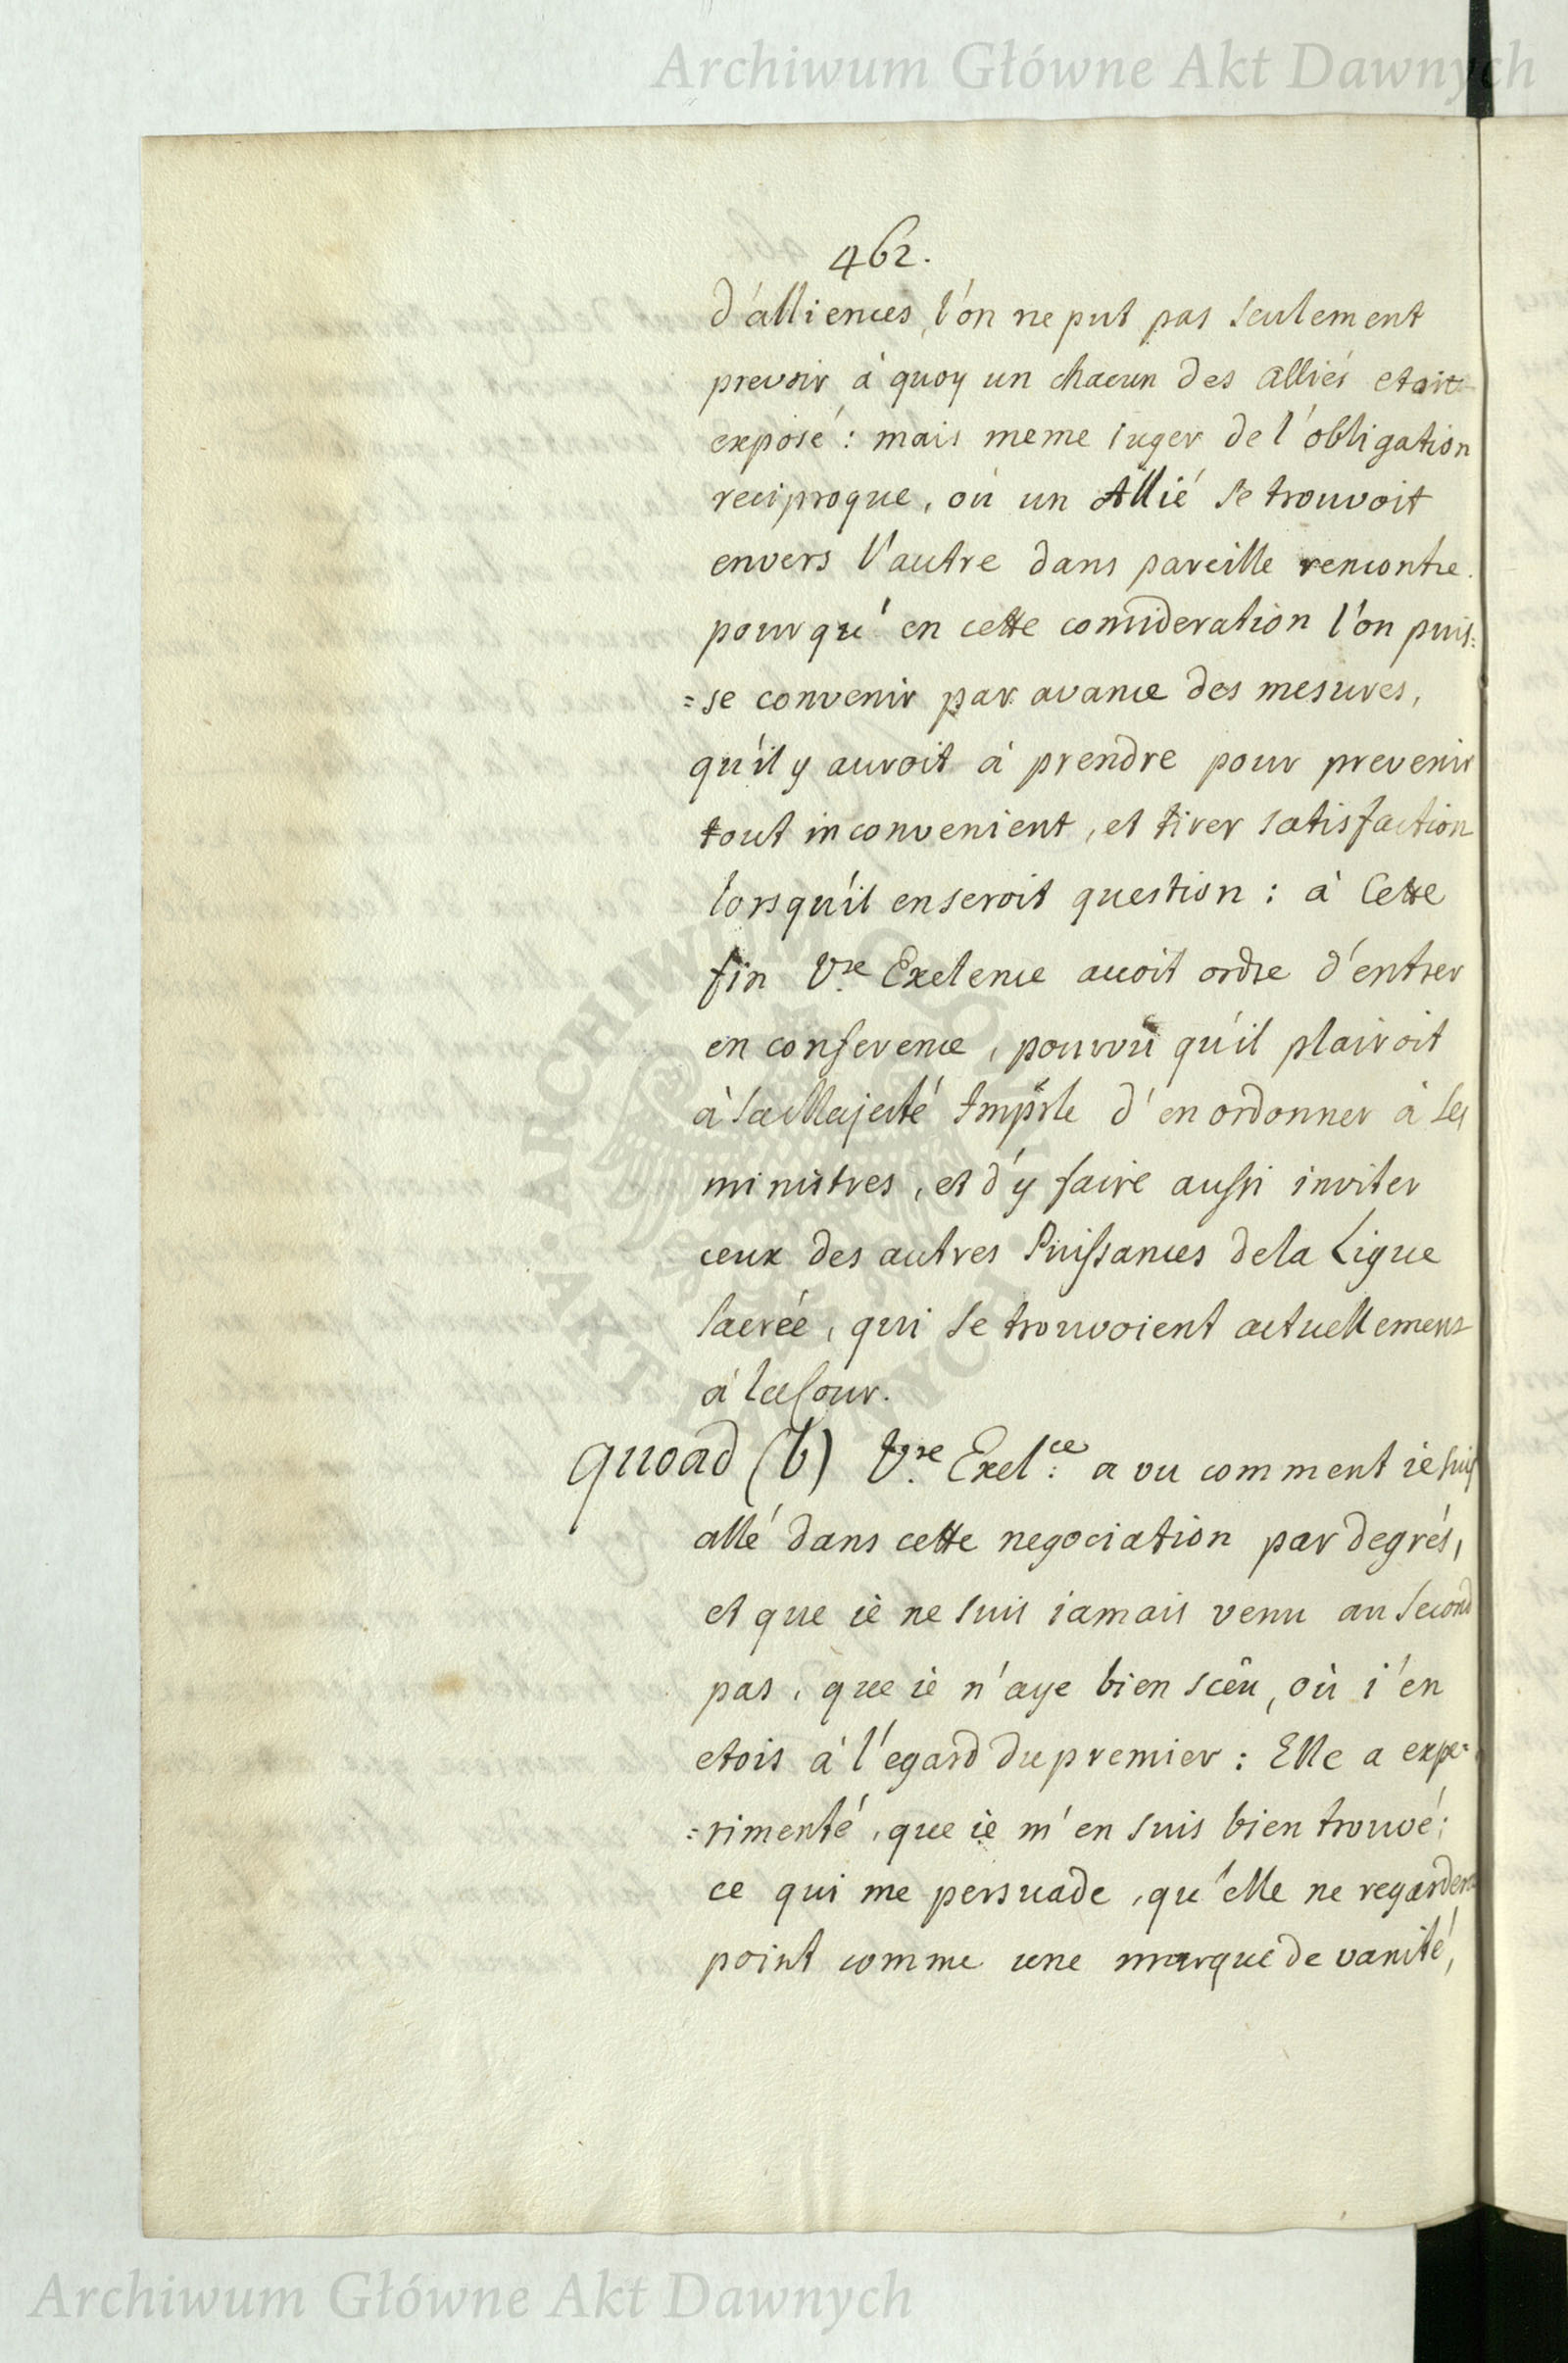 Archiwum Główne Akt Dawnych
462.
d'alliences, l'on ne put pas seulement
prevoir à quoy un chacun des alliés etoit
exposé: mais meme iuger de l'obligation
reciproque, où un Allié se trouvoit
envers l'autre dans pareille rencontre.
pour qu'en cette consideration l'on puis=
=se convenir par avance des mesures,
qu'il y auroit à prendre pour prevenir
tout inconvenient, et tirer satisfaction
lorsqu'il en seroit question: à Cette
fin Vre Exelence avoit ordre d'entrer
en conference, pourvû qu'il plairoit
à Sa Majesté Imprle d'en ordonner à ses
ministres, et d'y faire aussi inviter
ceux des autres Puissances de la Ligue
Sacrée, qui se trouvoient actuellement
à la Cour.
quoad (b) Vre Exel:ce a vu comment ie suis
allé dans cette negociation par degrés,
et que ie ne suis iamais venu au second
pas, que ie n'aye bien sceû, où i'en
etois à l'egard du premier: Elle a expe=
=rimenté, que ie m'en suis bien trouvé:
ce qui me persuade, qu'elle ne regardera
point comme une marque de vanité,
ARCHIWUM GŁÓWNE AKT DAWNYCH
Archiwum Główne Akt Dawnych